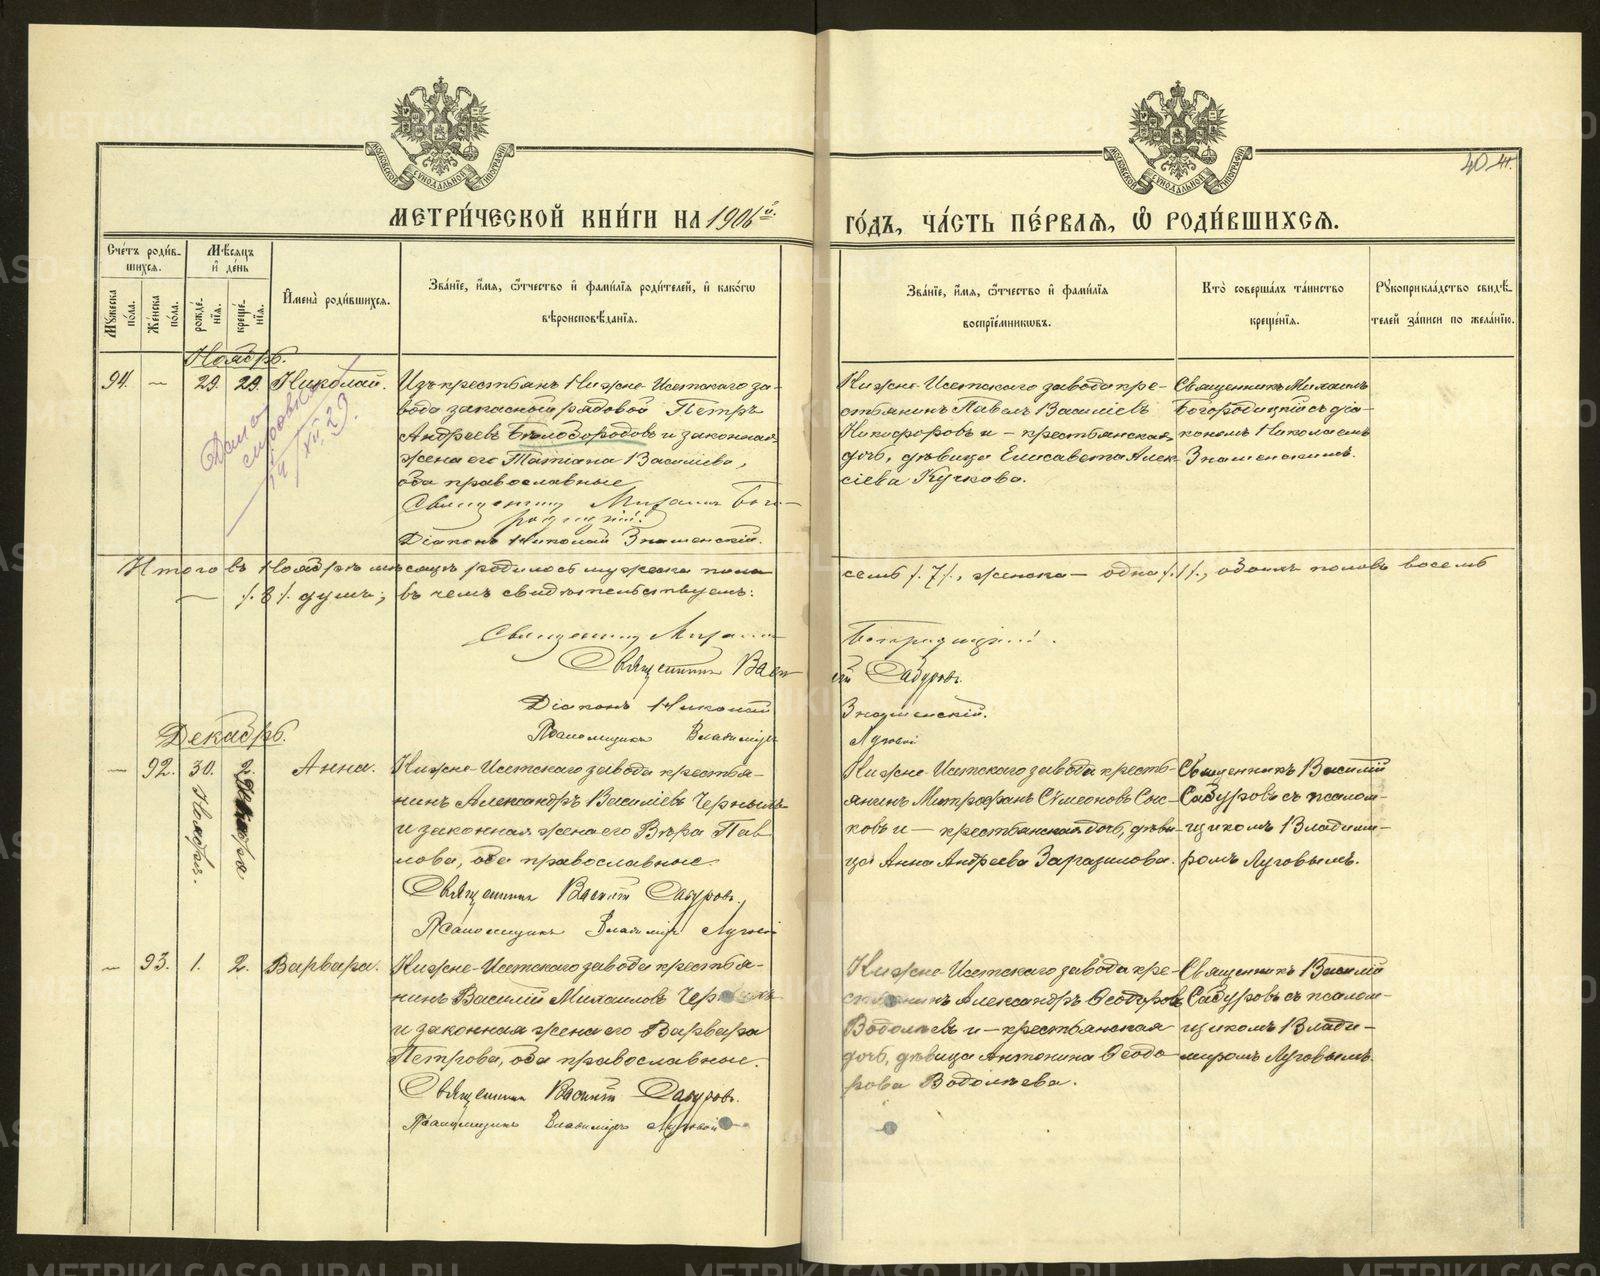 МОСКОВСКОЙ СѴНОДАЛЬНОЙ ТИПОГРАФІИ
МОСКОВСКОЙ СѴНОДАЛЬНОЙ ТИПОГРАФІИ
МЕТРИ́ЧЕСКОЙ КНИ́ГИ НА 1906й.
ГО́ДЪ, ЧА́СТЬ ПЕ́РВАЯ, Ѽ РОДИ́ВШИХСЯ.
Сче́тъ роди́в-
шихся.
Мѣ́сяцъ
и҆ де́нь
Мꙋ́жеска по́ла.
Же́нска по́ла.
рожде́-
нїя.
креще́-
нїя.
И҆мена̀ роди́вшихся.
Зва́нїе, и҆́мя, ѻ҆́тчество и҆ фами́лїя роди́телей, и҆ како́гѡ
вѣроисповѣ́данїя.
Зва́нїе, и҆́мя, ѻ҆́тчество и҆ фами́лїя
воспрїе́мникѡвъ.
Кто̀ соверша́лъ та́инство
креще́нїя.
Рꙋкоприкла́дство свидѣ́-
телей за́писи по жела́нїю.
Ноябрь.
94. — 29. 29. Николай.
Изъ крестьянъ Нижне-Исетскаго за-
вода запасный рядовой Петръ
Андреевъ Бѣлобородовъ и законная
жена его Татіана Васильева,
оба православные
Священникъ Михаилъ Бого-
родицкій.
Діаконъ Николай Знаменскій.
Нижне-Исетскаго завода кре-
стьянинъ Павелъ Василіевъ
Никифоровъ и – крестьянская
дочь, дѣвица Елисавета Алек-
сіева Кучкова.
Священникъ Михаилъ
Богородицкій съ діа-
кономъ Николаемъ
Знаменскимъ.
Итого въ Ноябрѣ мѣсяцѣ родилось мужеска пола
семь /. 7 /., женска – одна /. 1 /., обоихъ половъ восемь
— /. 8 /. душъ; въ чемъ свидѣтельствуемъ:
Священникъ Михаилъ Богородицкій.
Священникъ Василій Сабуровъ.
Діаконъ Николай Знаменскій.
Псаломщикъ Владиміръ Луговой
Декабрь.
— 92. 30. Ноября. 2. Декабря Анна.
Нижне-Исетскаго завода крестья-
нинъ Александръ Василіевъ Черныхъ
и законная жена его Вѣра Пав-
лова, оба православные.
Священникъ Василій Сабуровъ.
Псаломщикъ Владиміръ Луговой
Нижне-Исетскаго завода кресть-
янинъ Митрофанъ Сѵмеоновъ Сыс-
ковъ и – крестьянская дочь, дѣви-
ца Анна Андреева Загазилова.
Священникъ Василій
Сабуровъ съ псалом-
щикомъ Владими-
ромъ Луговымъ.
— 93. 1. 2. Варвара.
Нижне-Исетскаго завода крестья-
нинъ Василій Михаиловъ Черныхъ
и законная жена его Варвара
Петрова, оба православные.
Священникъ Василій Сабуровъ.
Псаломщикъ Владиміръ Луговой
Нижне-Исетскаго завода кре-
стьянинъ Александръ Ѳеодоровъ
Водолѣевъ и – крестьянская
дочь, дѣвица Антонина Ѳеодо-
рова Водолѣева.
Священникъ Василій
Сабуровъ съ псалом-
щикомъ Влади-
міромъ Луговымъ.
METRIKI.GASO-URAL.RU